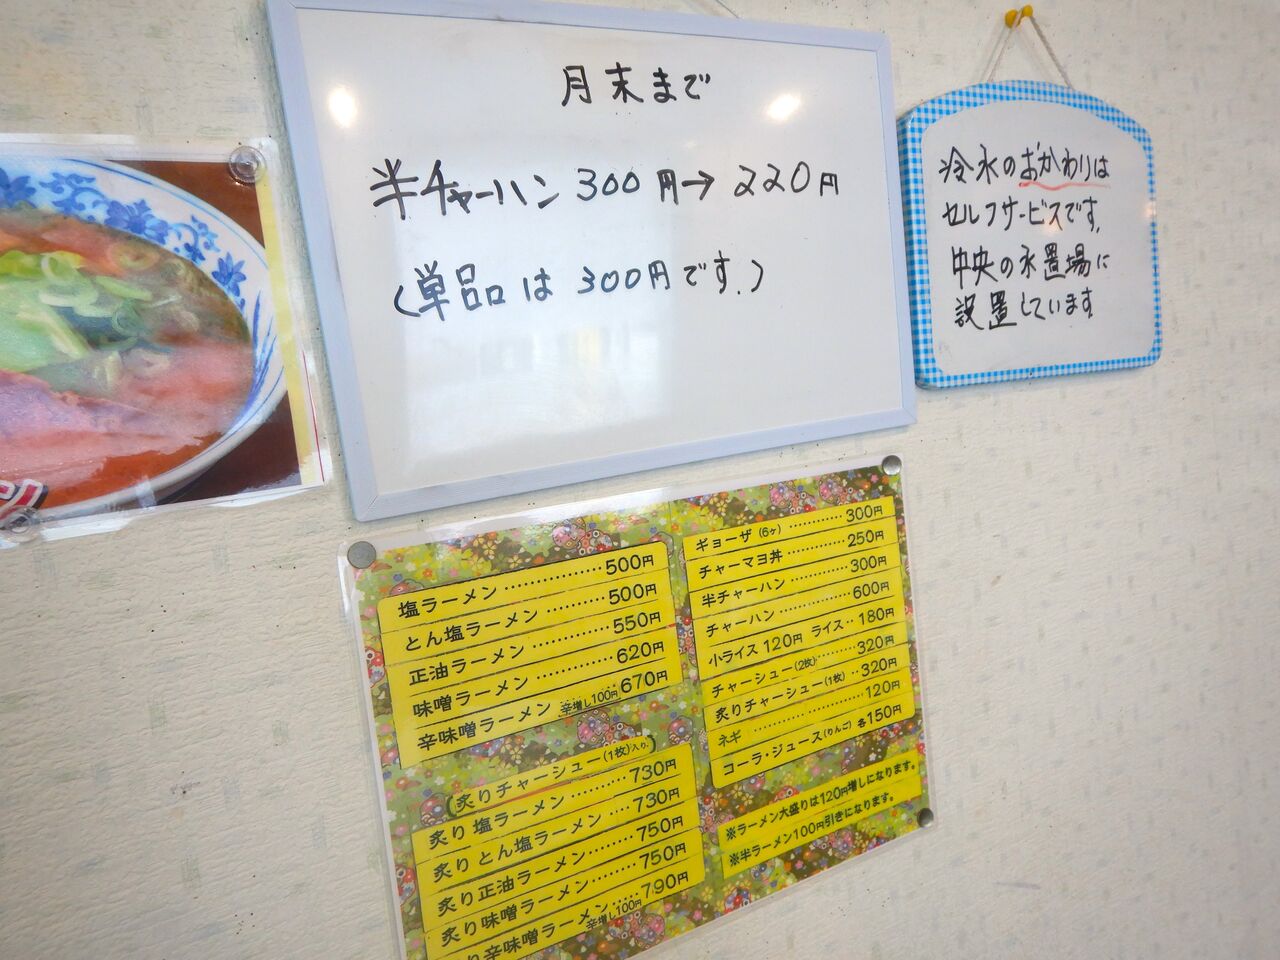 月末まで
半チャーハン 300円→220円
(単品は 300円です。)
冷水のおかわりは
セルフサービスです。
中央の水置場に
設置しています。
塩ラーメン………………500円
とん塩ラーメン…………500円
正油ラーメン……………550円
味噌ラーメン……………620円
辛味噌ラーメン 辛増し100円 670円
(炙りチャーシュー(1枚)入り。)
炙り 塩ラーメン………730円
炙り とん塩ラーメン……730円
炙り正油ラーメン………750円
炙り味噌ラーメン………750円
り辛味噌ラーメン…790円
辛増し100円
ギョーザ (6ケ)…………300円
チャーマヨ丼……………250円
半チャーハン……………300円
チャーハン………………600円
小ライス 120円 ライス‥180円
チャーシュー(2枚)………320円
炙りチャーシュー(1枚)‥320円
ネギ………………………120円
コーラ・ジュース(りんご) 各150円
※ラーメン大盛りは120円増しになります。
※半ラーメン100円引きになります。